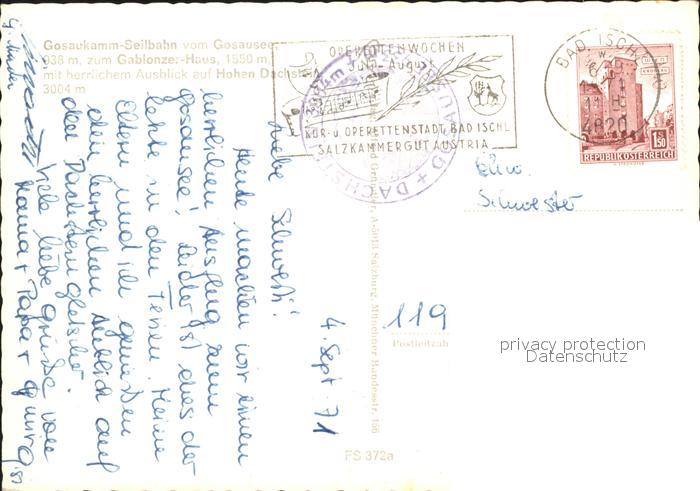 Gosaukamm-Seilbahn vom Gosausee,
938 m, zum Gablonzer-Haus, 1550 m,
mit herrlichem Ausblick auf Hohen Dachstein
3004 m
OPERETTENWOCHEN
Juli-August
KUR-u. OPERETTENSTADT BAD ISCHL
SALZKAMMERGUT AUSTRIA
BAD ISCHL
4820
1.50
REPUBLIK ÖSTERREICH
DACHSTEIN
Ehw.
Schwester
119
Postleitzahl
A-5013 Salzburg, Münchner Bundesstr. 166
FS 372a
4. Sept. 71
Liebe Schwester!
Heute machten wir einen
herrlichen Ausflug zum
Gosausee! Leider ist dies der
letzte in den Ferien. Meine
Eltern und ich genießen
den herrlichen Anblick auf
den Dachsteingletscher.
Viele liebe Grüße von
Mama + Papa +
privacy protection
Datenschutz